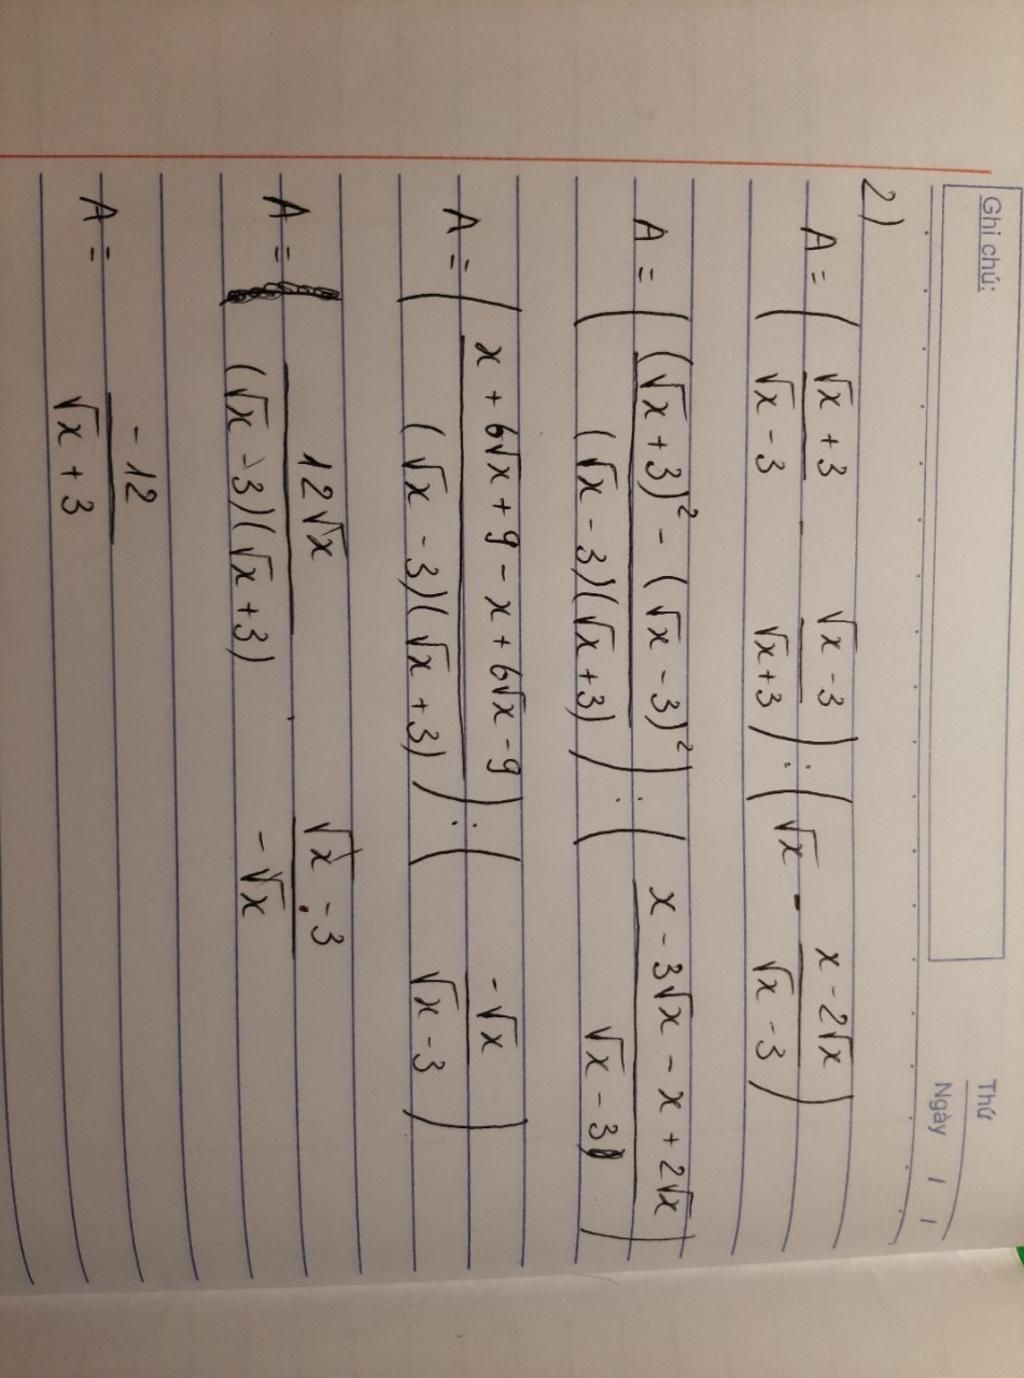 Ghi chú:
Thứ
Ngày / /
2)
A = ( (√x + 3)/(√x - 3) - (√x - 3)/(√x + 3) ) : ( √x - (x - 2√x)/(√x - 3) )
A = ( ((√x + 3)² - (√x - 3)²)/((√x - 3)(√x + 3)) ) : ( (x - 3√x - x + 2√x)/(√x - 3) )
A = ( (x + 6√x + 9 - x + 6√x - 9)/((√x - 3)(√x + 3)) ) : ( (-√x)/(√x - 3) )
A = (12√x)/((√x - 3)(√x + 3)) . (√x - 3)/(-√x)
A = (-12)/(√x + 3)